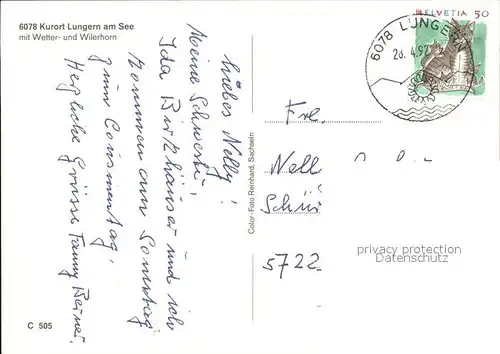 6078 Kurort Lungern am See
mit Wetter- und Wilerhorn
HELVETIA 50
6078 LUNGERN
26.4.92
Liebes Nelly!
Meine Schwester,
Ida Birkhäuser und ich
kommen am Sonntag
zum Consumentag,
Herzliche Grüsse Fanny Berner.
Frl.
Nell
Schür
5722
Color-Foto Reinhard, Sachseln
privacy protection
Datenschutz
C 505